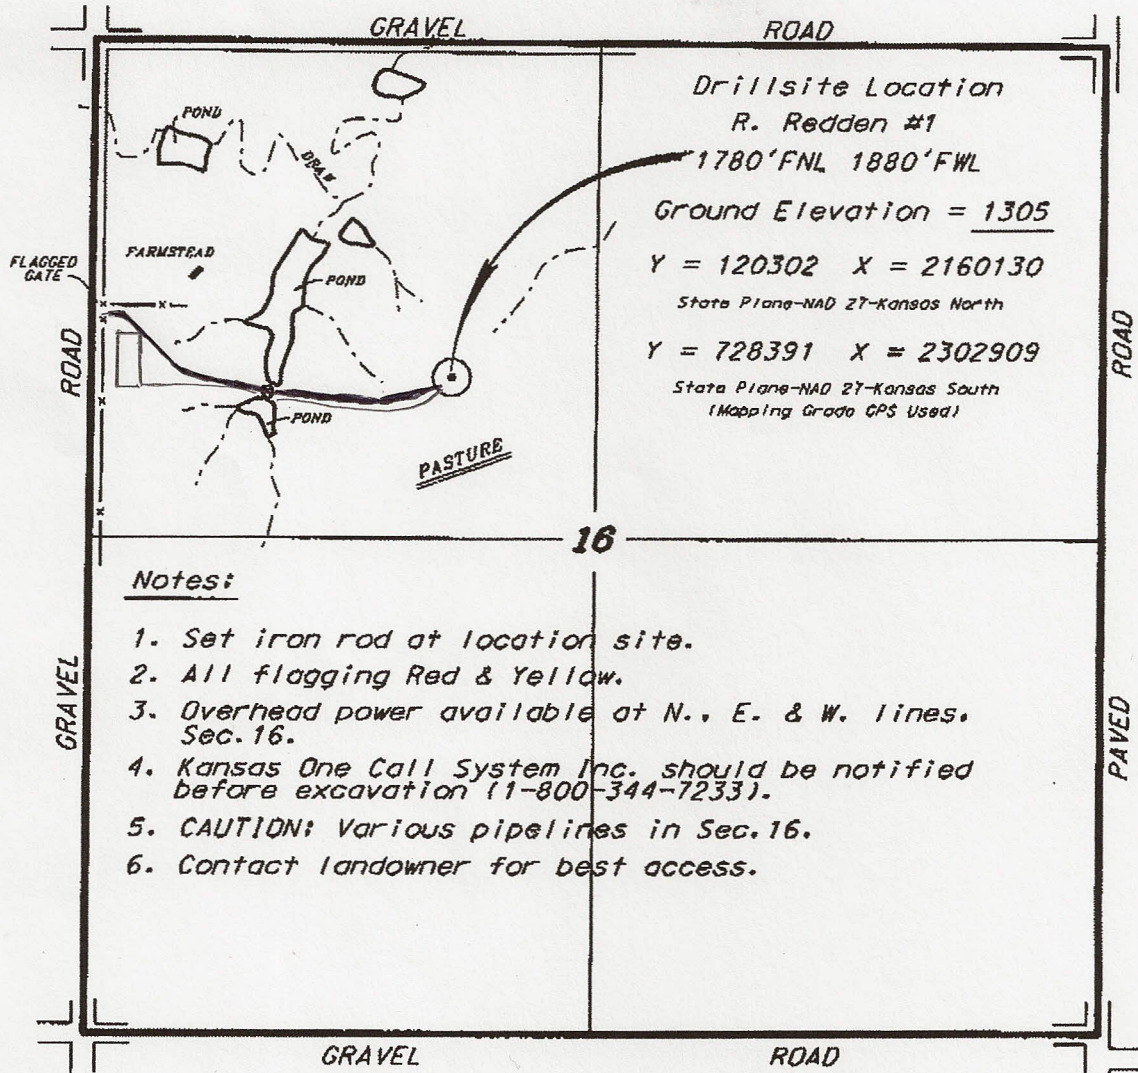 GRAVEL ROAD
Drillsite Location
R. Redden #1
1780'FNL 1880'FWL
Ground Elevation = 1305
Y = 120302 X = 2160130
State Plane-NAD 27-Kansas North
Y = 728391 X = 2302909
State Plane-NAD 27-Kansas South
(Mapping Grade GPS Used)
POND
DRAW
FARMSTEAD
FLAGGED
GATE
POND
POND
PASTURE
16
GRAVEL ROAD
PAVED ROAD
Notes:
1. Set iron rod at location site.
2. All flagging Red & Yellow.
3. Overhead power available at N., E. & W. lines,
Sec. 16.
4. Kansas One Call System Inc. should be notified
before excavation (1-800-344-7233).
5. CAUTION: Various pipelines in Sec. 16.
6. Contact landowner for best access.
GRAVEL ROAD